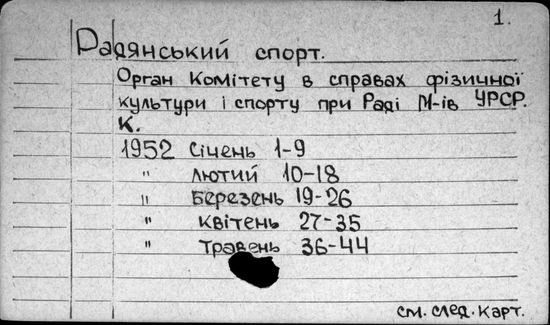 1.
Радянський спорт.
Орган Комітету в справах фізичної
культури і спорту при Раді М-ів УРСР.
К.
1952 Січень 1-9
" лютий 10-18
" Березень 19-26
" квітень 27-35
" травень 36-44
см. след. карт.